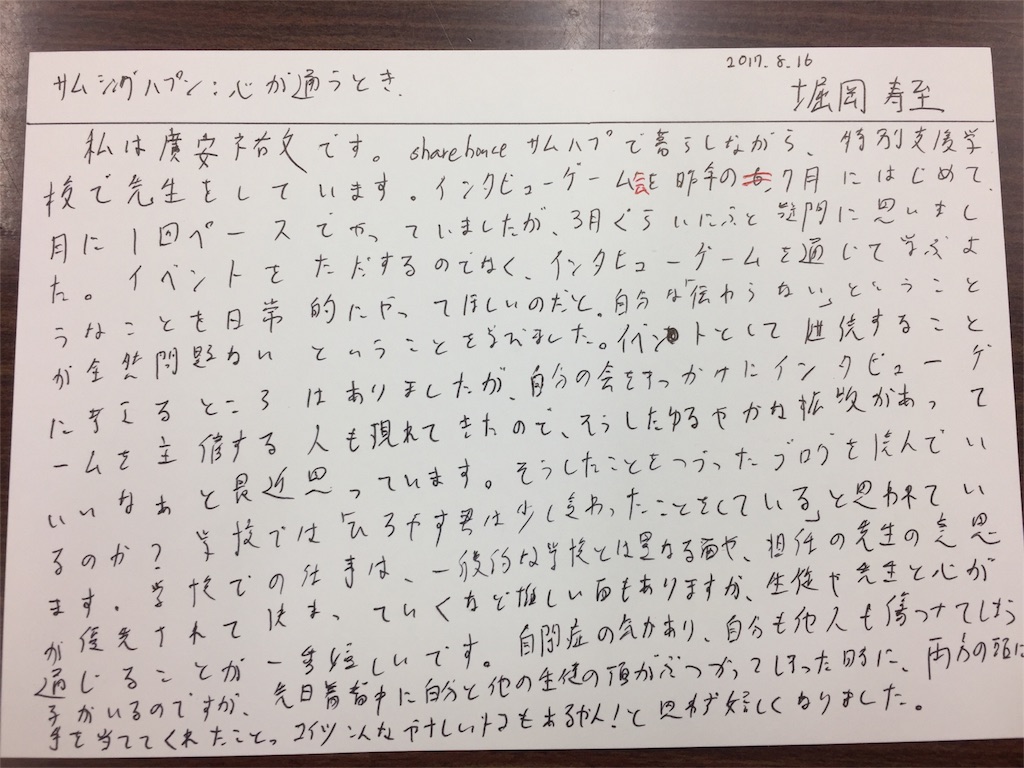 2017.8.16
サムシングハプン：心が通うとき.
堀岡 寿至
私は廣安祐文です。sharehouce サムハプで暮らしながら、特別支援学
校で先生をしています。インタビューゲーム会を昨年の7月にはじめて、
月に1回ペースでやっていましたが、3月ぐらいにふと疑問に思いまし
た。イベントをただするのでなく、インタビューゲームを通じて学ぶよ
うなことを日常的にやってほしいのだと。自分な「伝わらない」ということ
が全然問題ないということを学びました。イベントとして継続すること
に考えるところはありましたが、自分の会をきっかけにインタビューゲ
ームを主催する人も現れてきたので、そうしたゆるやかな拡散があって
いいなぁと最近思っています。そうしたことをつづったブログを読んでい
るのか？学校では「ひろやす君は少し変わったことをしている」と思われてい
ます。学校での仕事は、一般的な学校とは異なる面や、担任の先生の意思
が優先されて決まっていくなど難しい面もありますが、生徒や先生と心が
通じることが一番嬉しいです。自閉症の気があり、自分も他人も傷つけてしまう
子がいるのですが、先日着替中に自分と他の生徒の頭がぶつかってしまった時に、両方の頭に
手を当ててくれたこと。コイツこんなやさしいトコもあるやん！と思わず嬉しくなりました。